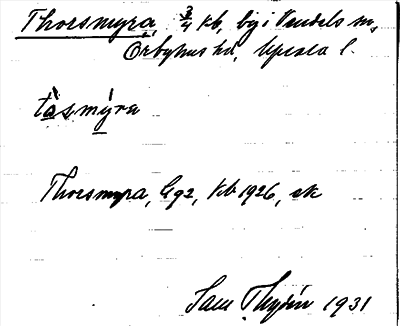 Thorsmyra, 3/4 kb, by i Vendels sn,
Örbyhus hd, Upsala l.
tàsmýra
Thorsmyra, Gg2, Kb 1926, ek
Sam Thydén 1931